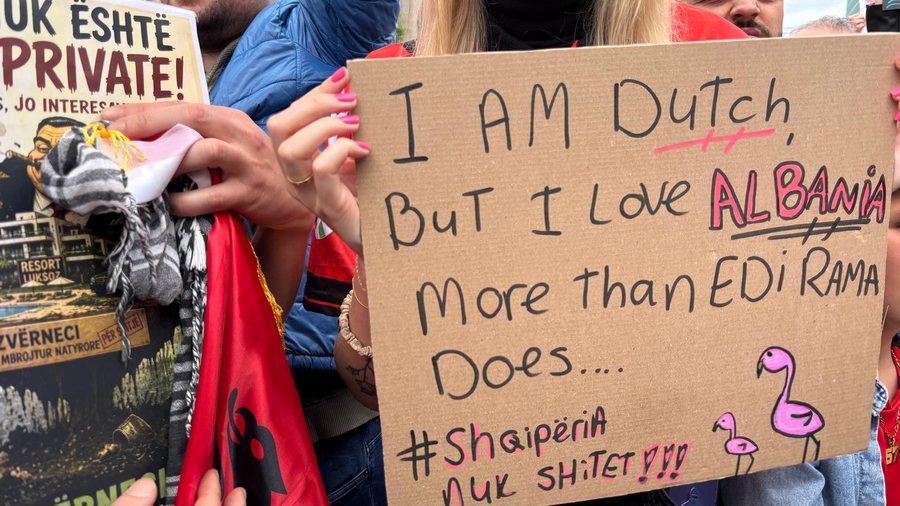 UK ËSHTË
PRIVATE!
S, JO INTERESA
RESORT
LUKSOZ
ZVËRNECI
MBROJTUR NATYRORE PËR SHITJE
VËRNECI
I AM DUTCH,
BUT I LOVE ALBANIA
MORE THAN EDI RAMA
DOES....
#ShqipëriA
NUK SHITET!!!